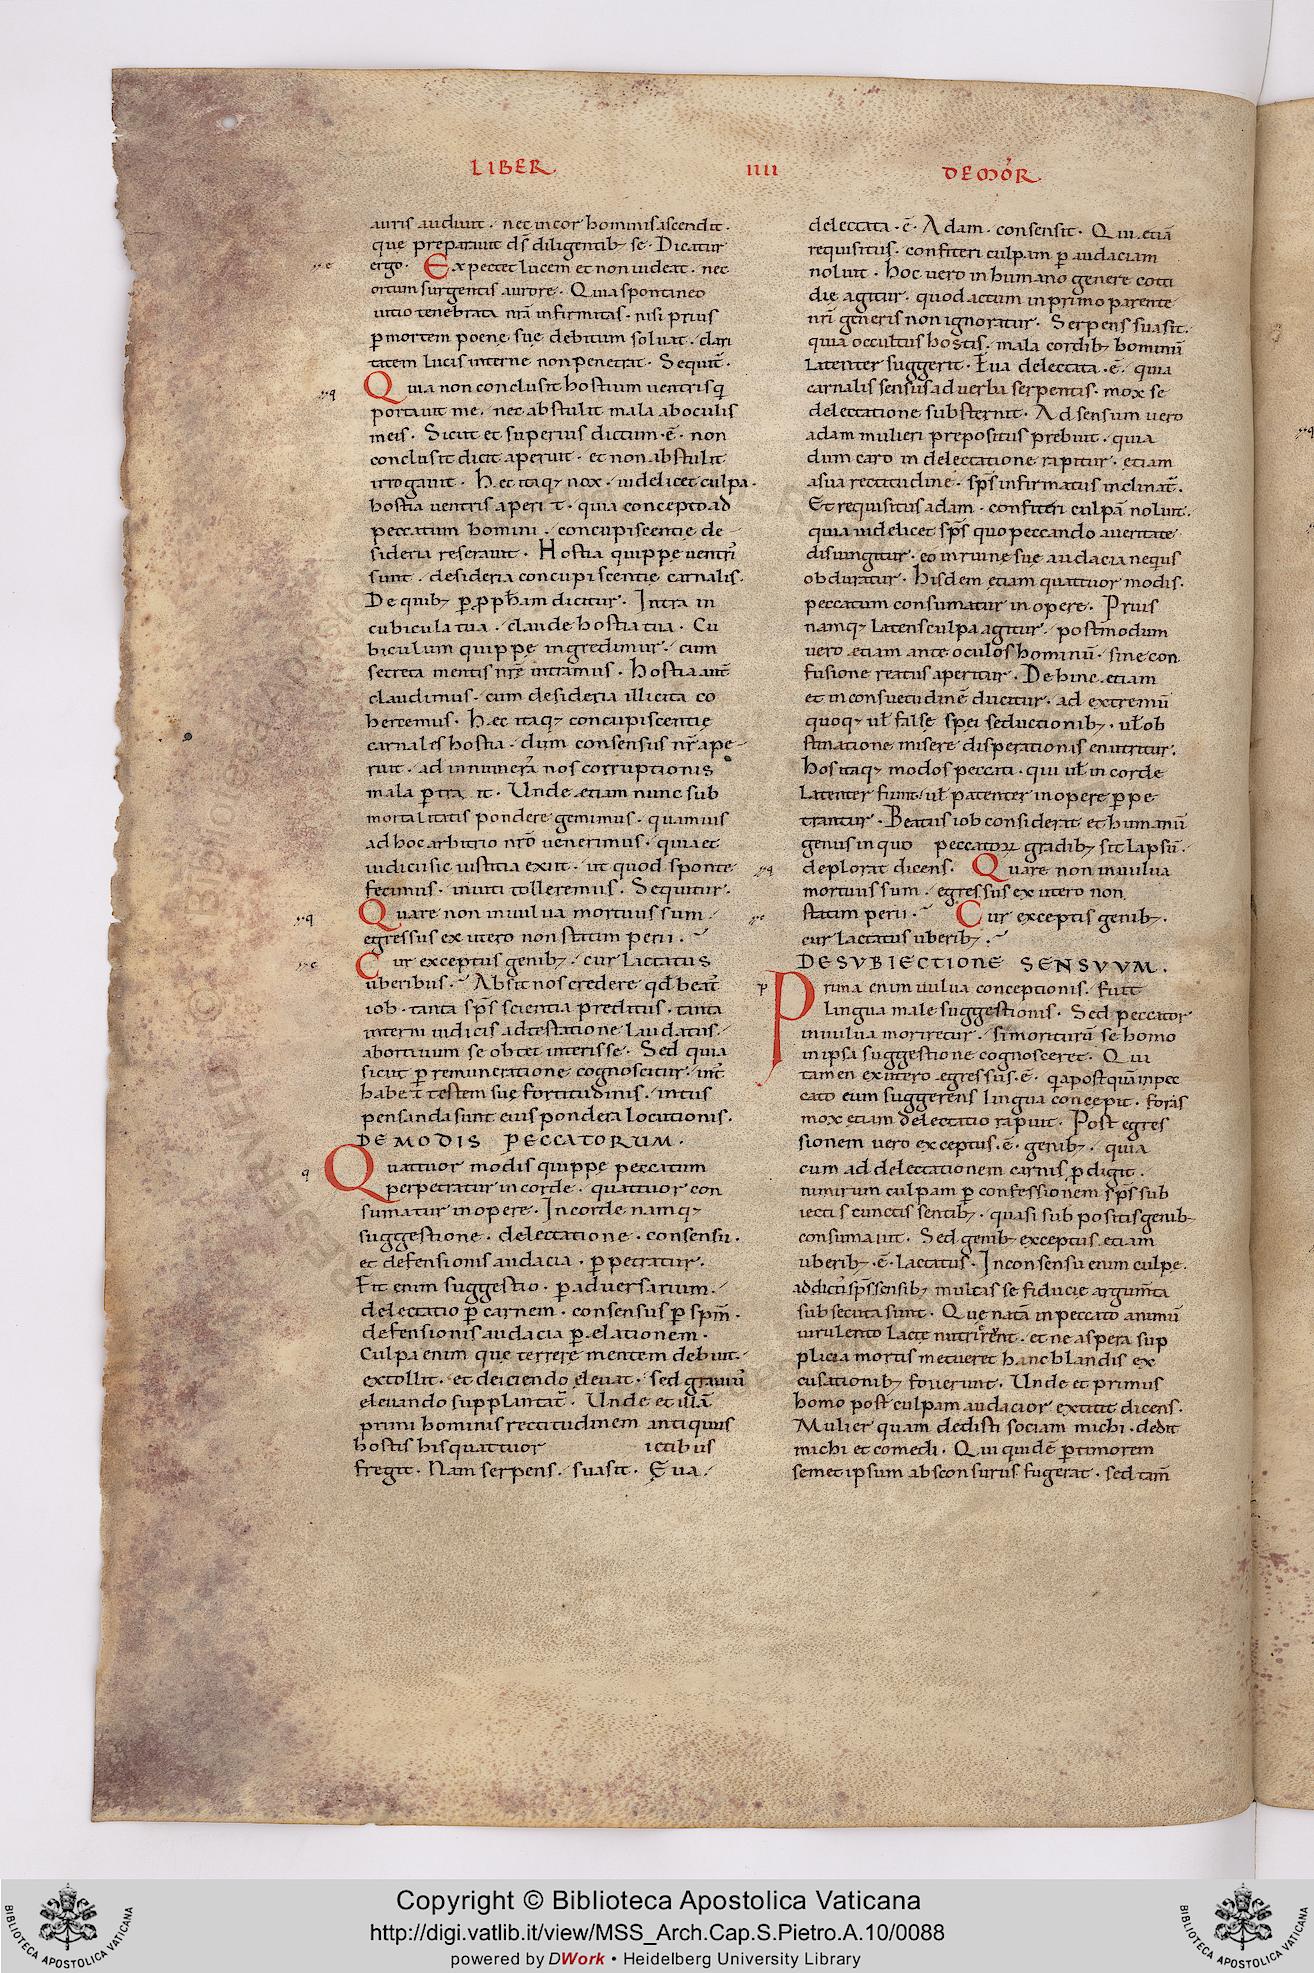 LIBER IIII DE MOR̄
auris audiuit · nec in cor hominis ascendit ·
que preparauit ds̄ diligentib; se · Dicatur
ergo · Expectet lucem et non uideat · nec
ortum surgentis aurore · Quia spontaneo
uitio tenebrata nrā infirmitas · nisi prius
p̱ mortem poenę suę debitum soluat · clari
tatem lucis internę non penetrat · Sequit̄ ·
Quia non conclusit hostium uentris q̄
portauit me · nec abstulit mala ab oculis
meis · Sicut et superius dictum · ē · non
conclusit dicit aperuit · et non abstulit
irrogauit · Hęc itaq; nox · uidelicet culpa ·
hostia uentris aperit · quia concepto ad
peccatum homini · concupiscentię de
sideria reserauit · Hostia quippe uentrī
sunt · desideria concupiscentię carnalis ·
De quib; p̱ p̱pħam dicitur · Intra in
cubicula tua · claude hostia tua · Cu
biculum quippe ingredimur · cum
secreta mentis nrę̄ intramus · Hostia aut̄
claudimus · cum desideria illicita co
hercemus · Hęc itaq; concupiscentię
carnales hostia · dum consensus nr̄ ape
ruit · ad innumerā nos corruptionis
mala p̱traxit · Unde etiam nunc sub
mortalitatis pondere gemimus · quamuis
ad hoc arbitrio nrō uenerimus · quia et
iudicii sic iustitia exiit · ut quod sponte
fecimus · inuiti tolleremus · Sequitur ·
Quare non in uulua mortuus sum ·
egressus ex utero non statim perii ·
Cur exceptus genib; · cur lactatus
uberibus · Absit nos credere qd̄ beat̄
iob · tanta sp̄s scientia preditus · tanta
interni iudicis adtestatione laudatus ·
abortiuum se obtet interisse · Sed quia
sicut p̱ remuneratione cognoscitur · int̄
habet testem suę fortitudinis · intus
pensanda sunt eius pondera locutionis ·
DE MODIS PECCATORUM ·
Quattuor modis quippe peccatum
perpetratur in corde · quattuor con
sumatur in opere · In corde namq;
suggestione · delectatione · consensu ·
et defensionis audacia · p̱petratur ·
Fit enim suggestio · p̱ aduersarium ·
delectatio p̱ carnem · consensus p̱ sp̄m ·
defensionis audacia p̱ elationem ·
Culpa enim que terrere mentem debuit ·
extollit · et deiciendo eleuat · sed grauiū
eleuando supplantat̄ · Unde et illā
primi hominis rectitudinem antiquus
hostis his quattuor ictibus
fregit · Nam serpens · suasit · Eua ·
delectata · ē · Adam · consensit · Qui etiā
requisitus · confiteri culpam p̱ audaciam
noluit · hoc uero in humano genere cotti
die agitur · quod actum in primo parente
nrī generis non ignoratur · Serpens suasit ·
quia occultus hostis · mala cordib; hominū
latenter suggerit · Eua delectata · ē · quia
carnalis sensus ad uerba serpentis · mox se
delectatione substernit · Adsensum uero
adam mulieri prepositus prebuit · quia
dum caro in delectatione rapitur · etiam
a sua rectitudine · sp̄s infirmatus inclinat̄ ·
Et requisitus adam · confiteri culpā noluit ·
quia uidelicet sp̄s quo peccando a ueritate
disiungitur · eo in ruinę suę audacia nequs
obduratur · Hisdem etiam quattuor modis ·
peccatum consumatur in opere · Prius
namq; latens culpa agitur · postmodum
uero etiam ante oculos hominū · sine con
fusione reatus aperitur · Dehinc etiam
et in consuetudinē ducitur · ad extremū
quoq; ut̄ falsę spei seductionib; · ut̄ ob
stinatione miserę disperationis enutritur ·
Hos itaq; modos peccati · qui ut̄ in corde
latenter fiunt · ut̄ patenter in opere p̱pe
trantur · Beatus iob considerat et humanū
genus in quo peccatoꝝ gradib; sit lapsū ·
deplorat dicens · Quare non in uulua
mortuus sum · egressus ex utero non
statim perii · Cur exceptis genib; ·
cur lactatus uberib; ·
DE SVBIECTIONE SENSVVM ·
Prima enim uulua conceptionis · fuit
lingua male suggestionis · Sed peccator
in uulua moriretur · si moriturū se homo
in ipsa suggestione cognosceret · Qui
tamen ex utero egressus · ē · q̄a postquā in pec
cato eum suggerens lingua concepit · foras
mox etiam delectatio rapuit · Post egres
sionem uero exceptus · ē · genib; · quia
cum ad delectationem carnis p̱digit ·
nimirum culpam p̱ confessionem sp̄s sub
iectis cunctis sentib; · quasi sub positis genib;
consumauit · Sed genib; exceptus etiam
uberib; · ē · lactatus · In consensu enim culpę ·
addicti sp̄s sensib; multas se fiducię argum̄ta
subsecuta sunt · Quę natā in peccato animū
uirulento lacte nutrirent · et ne aspera sup
plicia mortis metueret hanc blandis ex
cusationib; fouerunt · Unde et primus
homo post culpam audacior extitit dicens ·
Mulier quam dedisti sociam michi · dedit
michi et comedi · Qui quidē p̱ timorem
semet ipsum absconsurus fugerat · sed tam̄
Copyright © Biblioteca Apostolica Vaticana
http://digi.vatlib.it/view/MSS_Arch.Cap.S.Pietro.A.10/0088
powered by DWork • Heidelberg University Library
BIBLIOTECA APOSTOLICA VATICANA
BIBLIOTECA APOSTOLICA VATICANA